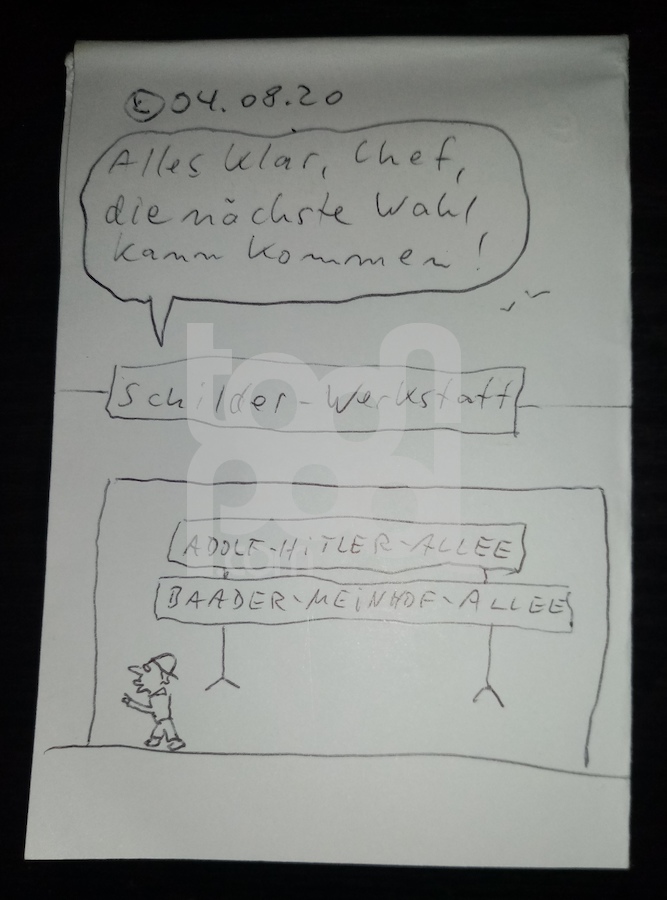 © 04.08.20
Alles klar, Chef,
die nächste Wahl
kann kommen!
Schilder-Werkstatt
ADOLF-HITLER-ALLEE
BAADER-MEINHOF-ALLEE
toon
pool
.com